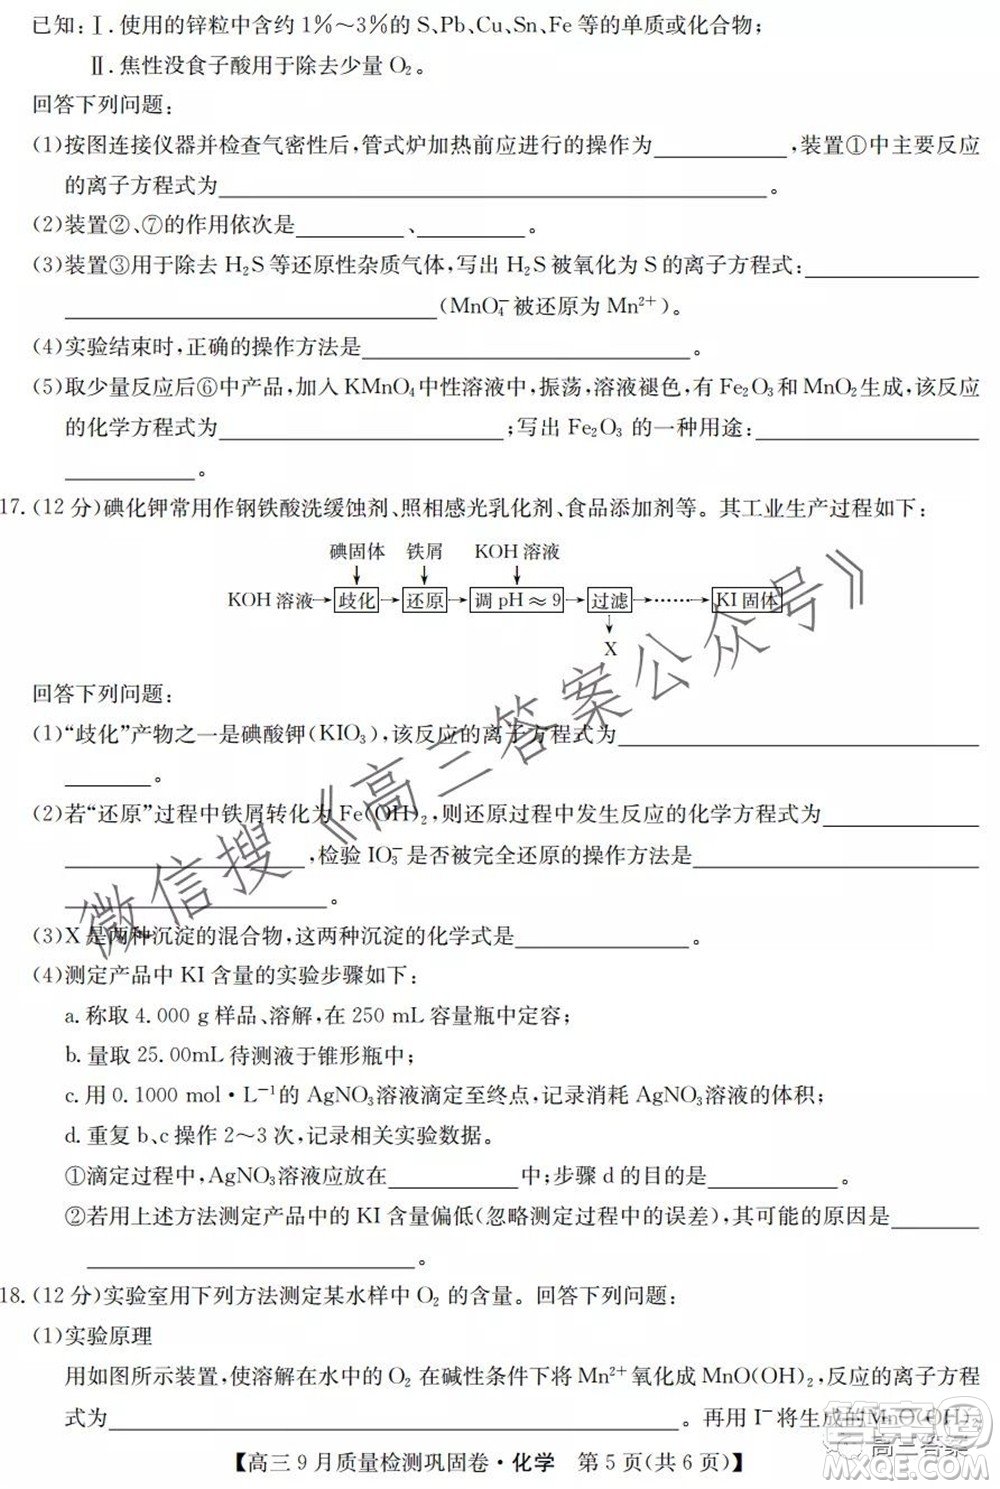 已知:Ⅰ.使用的锌粒中含约1%～3%的S、Pb、Cu、Sn、Fe等的单质或化合物;
Ⅱ.焦性没食子酸用于除去少量O₂。
回答下列问题:
(1)按图连接仪器并检查气密性后,管式炉加热前应进行的操作为____________,装置①中主要反应
的离子方程式为____________。
(2)装置②、⑦的作用依次是____________、____________。
(3)装置③用于除去H₂S等还原性杂质气体,写出H₂S被氧化为S的离子方程式:____________
____________(MnO₄⁻被还原为Mn²⁺)。
(4)实验结束时,正确的操作方法是____________。
(5)取少量反应后⑥中产品,加入KMnO₄中性溶液中,振荡,溶液褪色,有Fe₂O₃和MnO₂生成,该反应
的化学方程式为____________;写出Fe₂O₃的一种用途:____________
____________。
17.(12分)碘化钾常用作钢铁酸洗缓蚀剂、照相感光乳化剂、食品添加剂等。其工业生产过程如下:
碘固体 铁屑 KOH溶液
KOH溶液→歧化→还原→调pH≈9→过滤→……→KI固体
X
回答下列问题:
(1)“歧化”产物之一是碘酸钾(KIO₃),该反应的离子方程式为____________
____________。
(2)若“还原”过程中铁屑转化为Fe(OH)₂,则还原过程中发生反应的化学方程式为____________
____________,检验IO₃⁻是否被完全还原的操作方法是____________
____________。
(3)X是两种沉淀的混合物,这两种沉淀的化学式是____________。
(4)测定产品中KI含量的实验步骤如下:
a.称取4.000 g样品、溶解,在250 mL容量瓶中定容;
b.量取25.00mL待测液于锥形瓶中;
c.用0.1000 mol·L⁻¹的AgNO₃溶液滴定至终点,记录消耗AgNO₃溶液的体积;
d.重复b、c操作2～3次,记录相关实验数据。
①滴定过程中,AgNO₃溶液应放在____________中;步骤d的目的是____________。
②若用上述方法测定产品中的KI含量偏低(忽略测定过程中的误差),其可能的原因是____________
____________。
18.(12分)实验室用下列方法测定某水样中O₂的含量。回答下列问题:
(1)实验原理
用如图所示装置,使溶解在水中的O₂在碱性条件下将Mn²⁺氧化成MnO(OH)₂,反应的离子方程
式为____________。再用I⁻将生成的MnO(OH)₂
【高三9月质量检测巩固卷·化学 第5页(共6页)】
微信搜《高三答案公众号》
高三答案